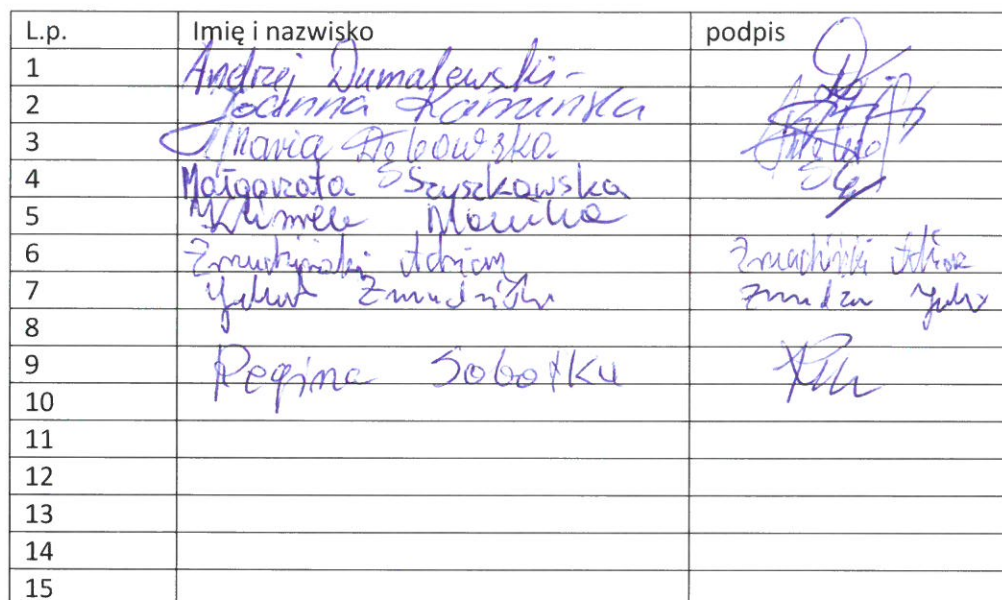 L.p. Imię i nazwisko podpis
1 Andrzej Dumalewski
2 Joanna Kamińska
3 Maria Dębowska
4 Małgorzata Szyszkowska
5 Klimek Monika
6 Żmudziński Adrian Żmudziński
7 Żmudzin
8
9 Regina Sobotka
10
11
12
13
14
15